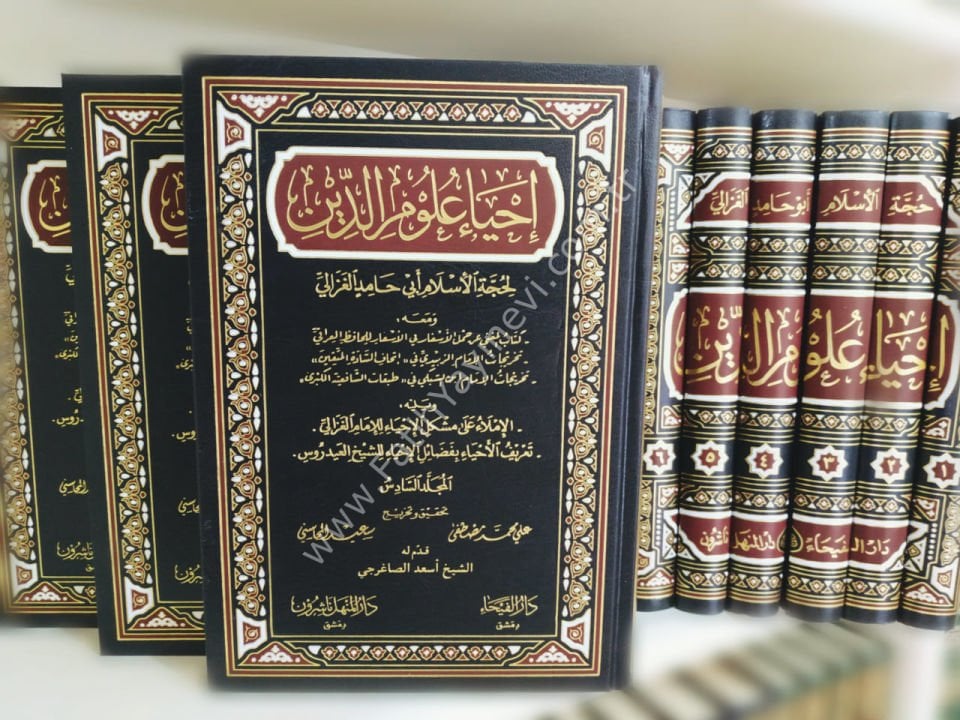 إحياء علوم الدين
لحجة الإسلام أبي حامد الغزالي
ومعه:
تخريجات الإمام الزبيدي في «إتحاف السادة المتقين»
- تخريجات الإمام ابن السبكي في «طبقات الشافعية الكبرى»
ويليه:
- الإملاء على مشكل الإحياء للإمام الغزالي.
- تعريف الأحياء بفضائل الإحياء للشيخ العيدروس.
المجلد السادس
تحقيق وتخريج
علي محمد مصطفى
سعيد المحاسني
قدم له
الشيخ أسعد الصاغرجي
دار الفيحاء
دمشق
دار المنهل ناشرون
دمشق
حجة الإسلام أبو حامد الغزالي
إحياء علوم الدين
١ ٢ ٣ ٤ ٥ ٦
دار الفيحاء دار المنهل ناشرون